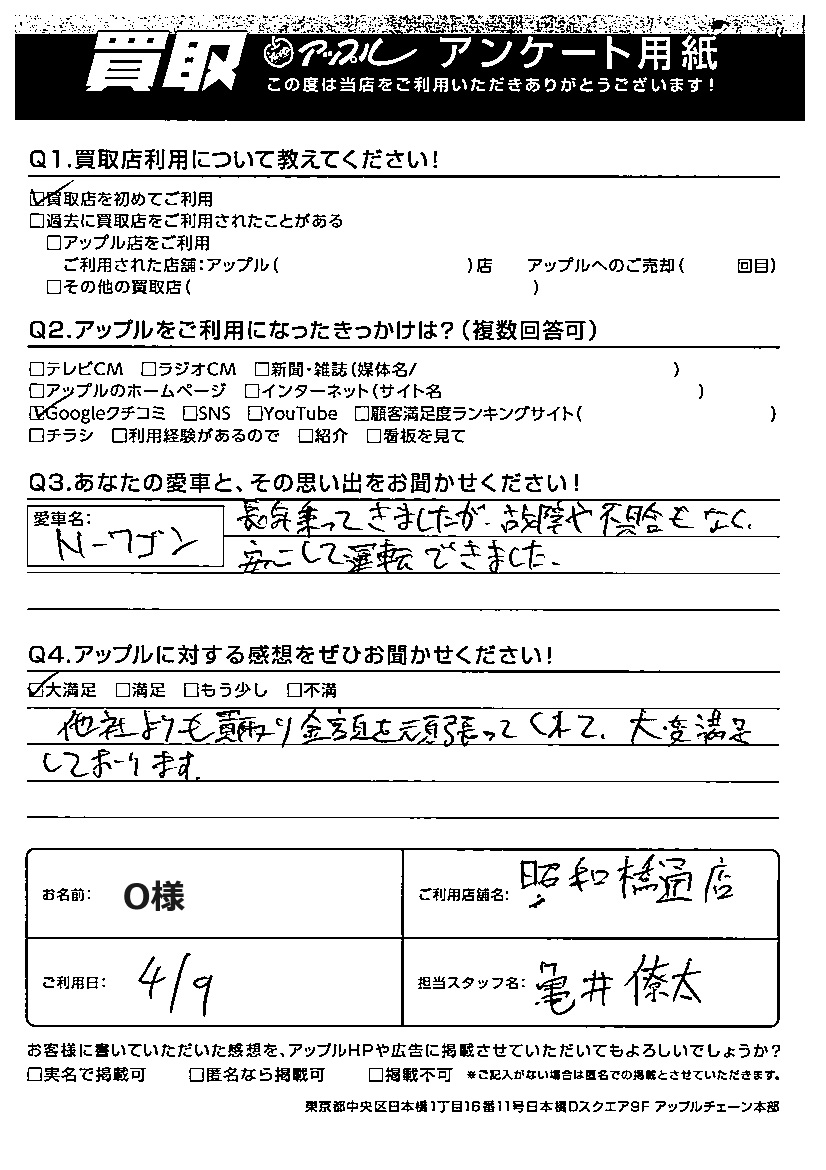 買取 アップル アンケート用紙
この度は当店をご利用いただきありがとうございます!
Q1.買取店利用について教えてください!
☑買取店を初めてご利用
□過去に買取店をご利用されたことがある
□アップル店をご利用
ご利用された店舗:アップル( )店 アップルへのご売却( 回目)
□その他の買取店( )
Q2.アップルをご利用になったきっかけは?(複数回答可)
□テレビCM □ラジオCM □新聞・雑誌(媒体名/ )
□アップルのホームページ □インターネット(サイト名 )
☑Googleクチコミ □SNS □YouTube □顧客満足度ランキングサイト( )
□チラシ □利用経験があるので □紹介 □看板を見て
Q3.あなたの愛車と、その思い出をお聞かせください!
愛車名: N-ワゴン
長年乗ってきましたが、故障や不具合もなく、
安心して運転できました。
Q4.アップルに対する感想をぜひお聞かせください!
☑大満足 □満足 □もう少し □不満
他社よりも買取り金額を頑張ってくれて、大変満足
しております。
お名前: O様 ご利用店舗名: 昭和橋通店
ご利用日: 4/9 担当スタッフ名: 亀井 僚太
お客様に書いていただいた感想を、アップルHPや広告に掲載させていただいてもよろしいでしょうか?
□実名で掲載可 □匿名なら掲載可 □掲載不可 ※ご記入がない場合は匿名での掲載とさせていただきます。
東京都中央区日本橋1丁目16番11号日本橋Dスクエア9F アップルチェーン本部